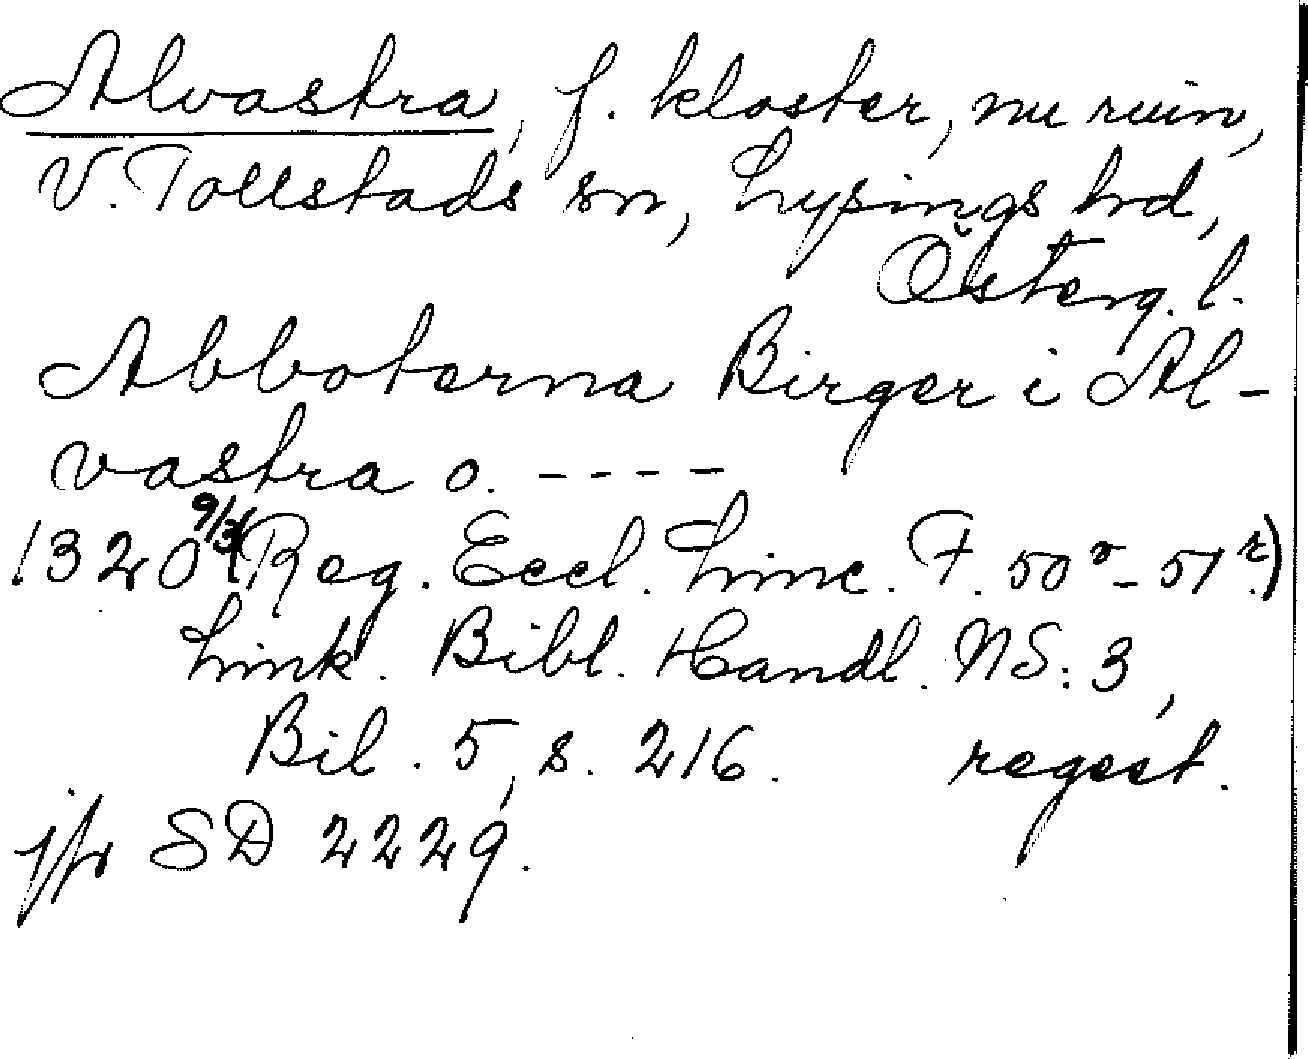 Alvastra, f. kloster, nu ruin,
V. Tollstads sn, Lysings hd,
Österg. l.
Abboterna Birger i Al-
vastra o. - - - -
1320 9/3 (Reg. Eccl. Linc. F. 50v - 51r.)
Link. Bibl. Handl. NS: 3,
Bil. 5, s. 216. regest.
jfr SD 2229.